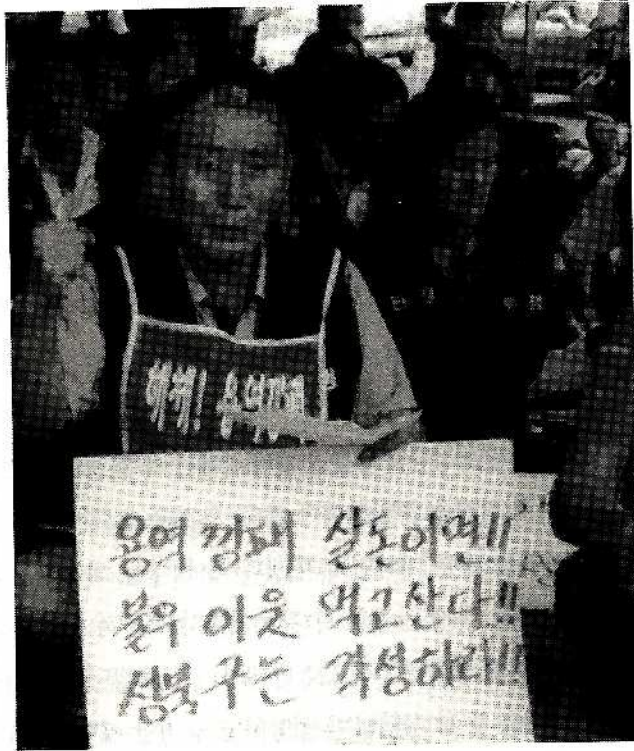 해체! 용역깡패
용역 깡패 살돈이면!!
불우 이웃 먹고산다!!
성북구는 각성하라!!!